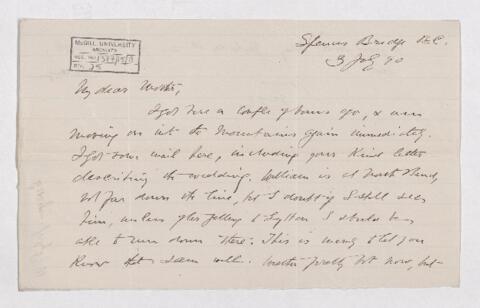 McGILL UNIVERSITY
ARCHIVES
ACC. NO.
REF. 35
Spences Bridge B.C.
3 July 90
My dear Mother,
I got here a couple of hours ago, & am
moving on into the mountains again immediately.
I got some mail here, including your kind letter
describing the wedding. William is at North Bend,
not far down the line, but I doubt if I shall see
him, unless after getting to Lytton I should be
able to run down there. This is merely to let you
know that I am well. Weather pretty hot now, but